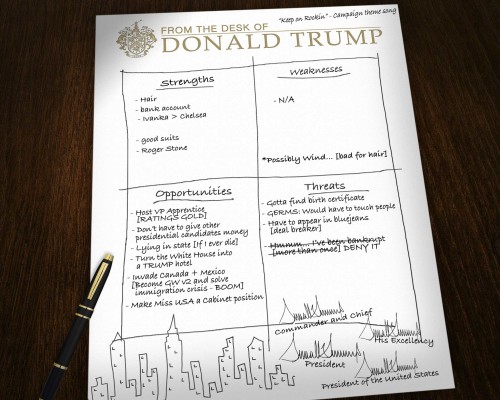 "Keep on Rockin" - Campaign theme song
FROM THE DESK OF
DONALD TRUMP
Strengths
- Hair
- bank account
- Ivanka > Chelsea
- good suits
- Roger Stone
Weaknesses
- N/A
*Possibly Wind... [bad for hair]
Opportunities
- Host VP Apprentice
[RATINGS GOLD]
- Don't have to give other
presidential candidates money
- Lying in state [If I ever die]
- Turn the White House into
a TRUMP hotel
- Invade Canada + Mexico
[Become GW v2 and solve
immigration crisis - BOOM]
- Make Miss USA a Cabinet position
Threats
- Gotta find birth certificate
- GERMS: Would have to touch people
- Have to appear in bluejeans
[deal breaker]
- Hmmm... I've been bankrupt
[more than once] DENY IT
Commander and Chief
His Excellency
President
President of the United States